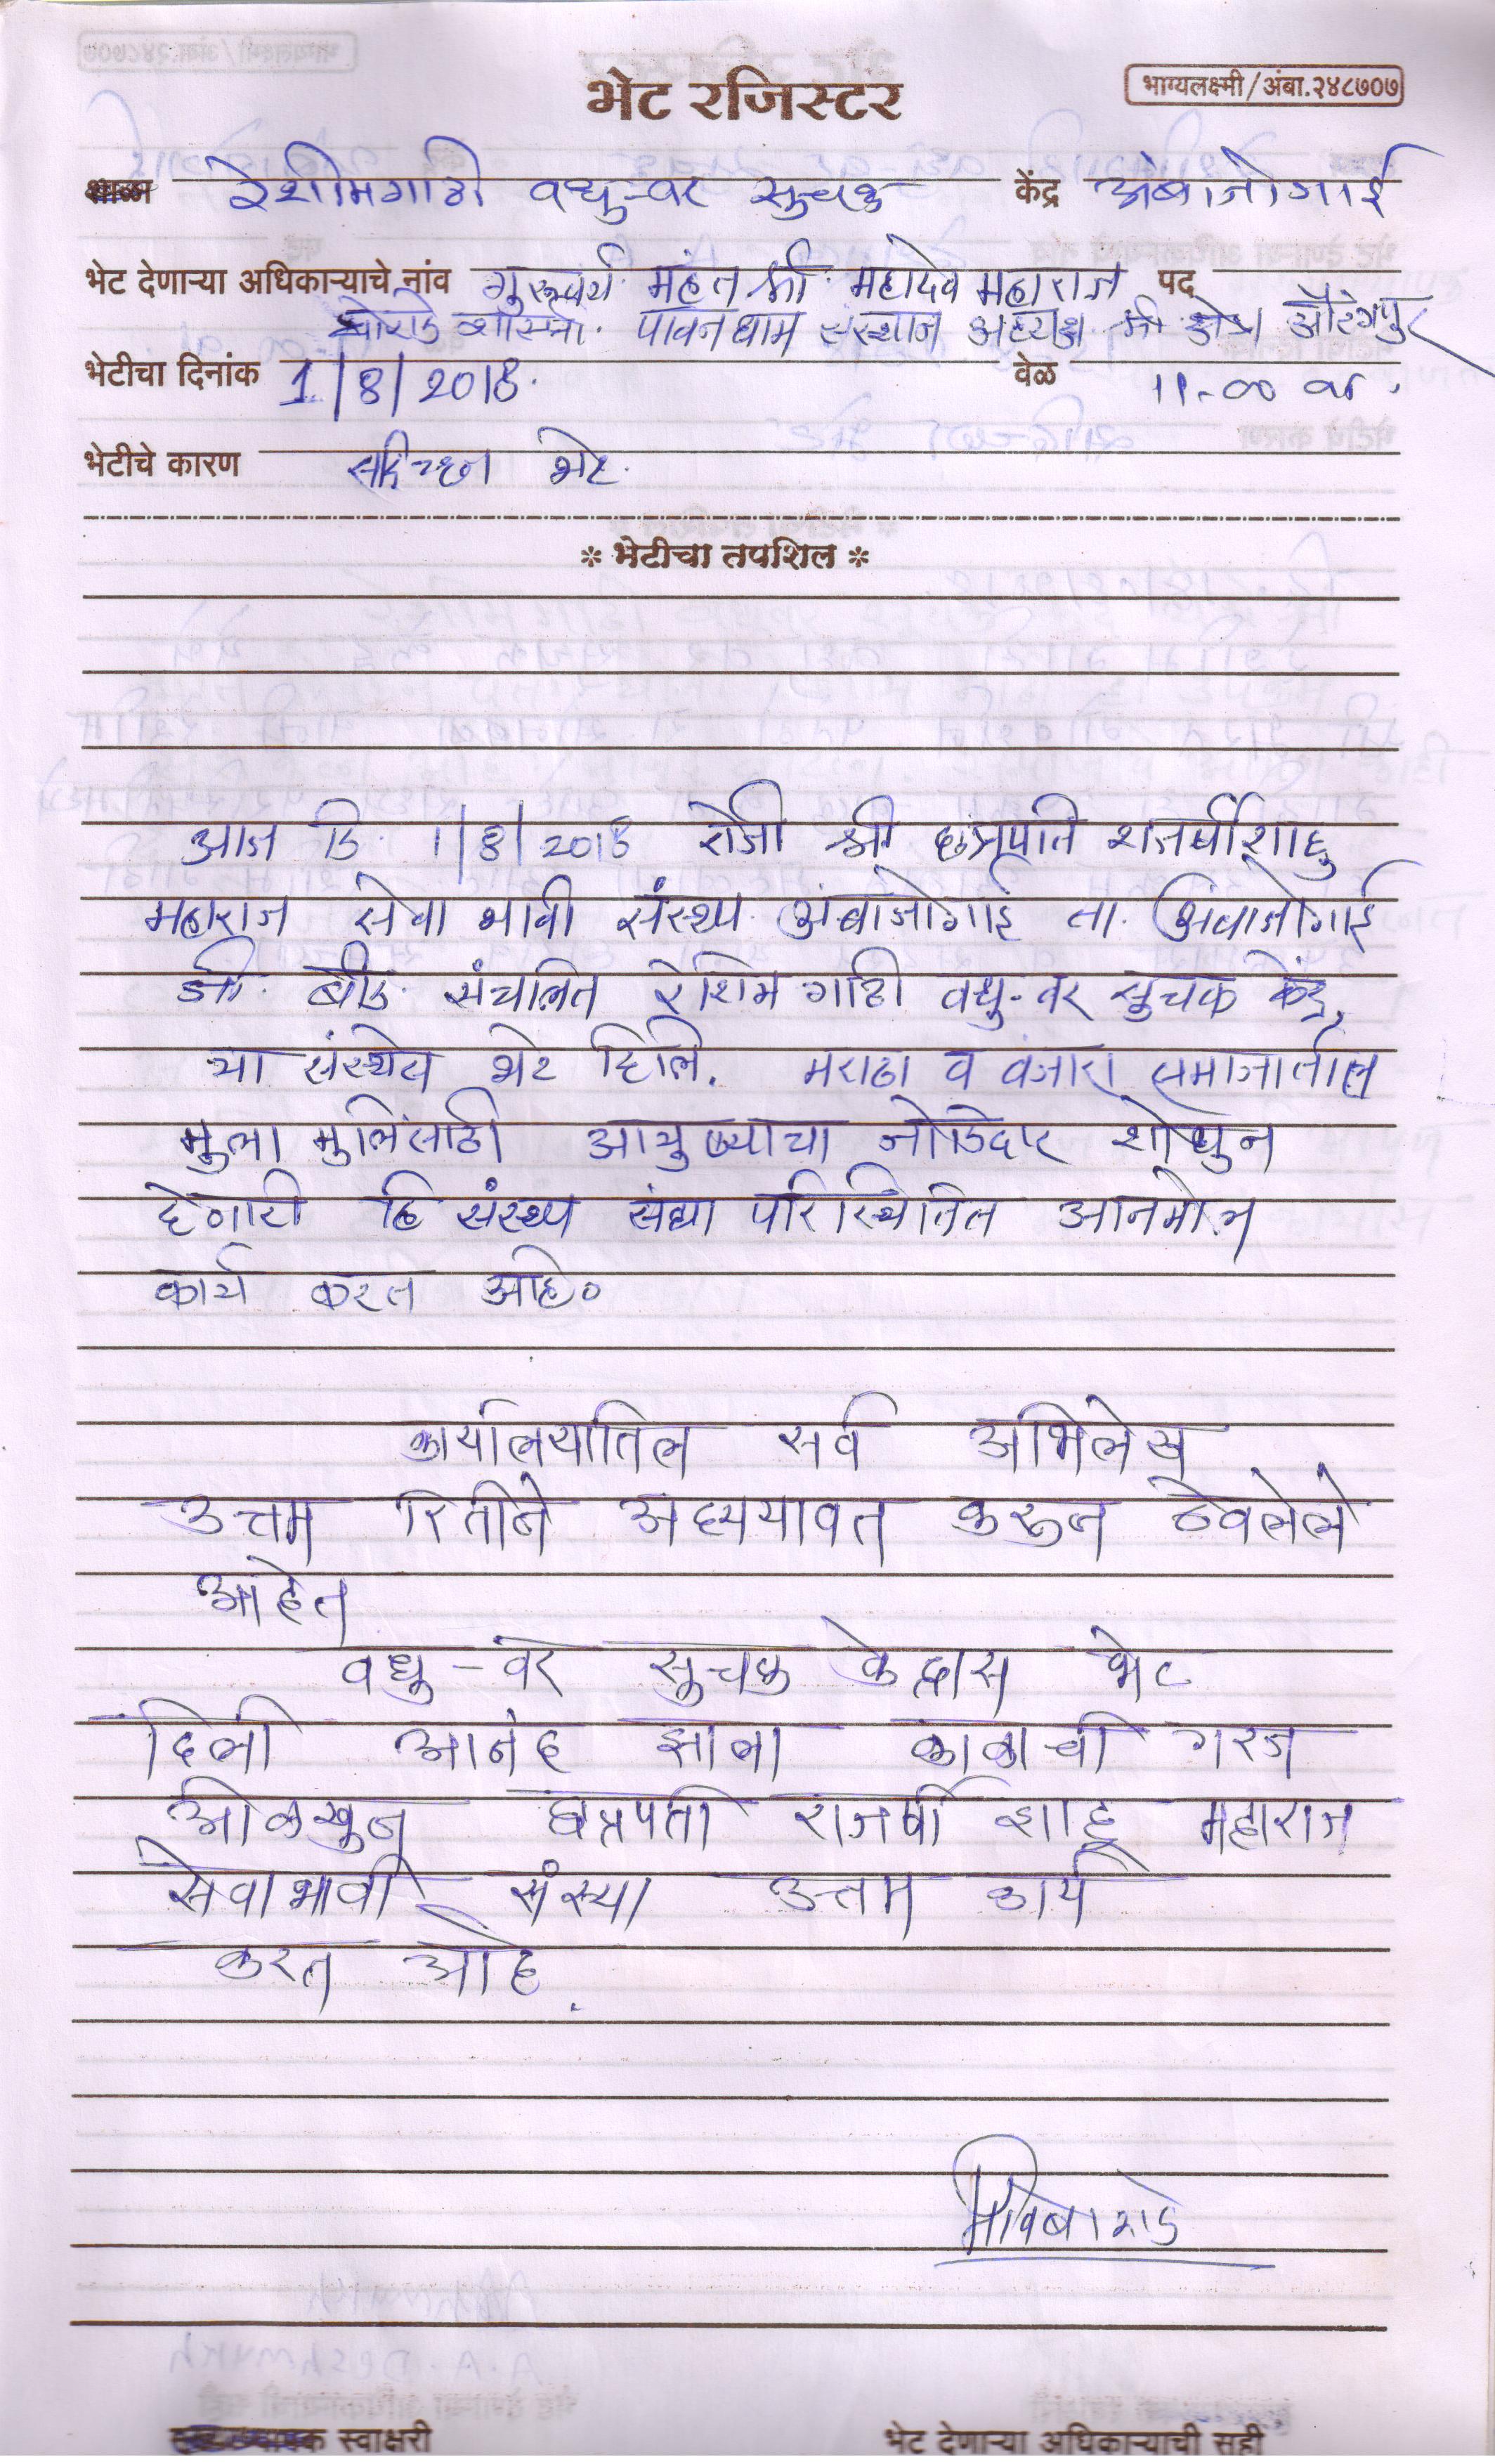 भेट रजिस्टर
भाग्यलक्ष्मी/अंबा.२४८७०७
शाळा रेशीमगाठी वधु-वर सुचक केंद्र अंबाजोगाई
भेट देणाऱ्या अधिकाऱ्याचे नांव गुरूवर्य महंत श्री. महादेव महाराज पद
शास्त्री. पावनधाम संस्थान अध्यक्ष श्री क्षेत्र औरंगपुर
भेटीचा दिनांक 1/8/2018. वेळ ११-००
भेटीचे कारण सदिच्छा भेट.
* भेटीचा तपशिल *
आज दि. 1/8/2018 रोजी श्री छत्रपति राजर्षी शाहु
महाराज सेवा भावी संस्था अंबाजोगाई ता. अंबाजोगाई
जी. बीड. संचलित रेशिम गाठी वधु-वर सुचक केंद्र,
या संस्थेस भेट दिलि. मराठा व वंजारा समाजातील
मुला मुलिंसाठी आयुष्याचा जोडिदार शोधुन
देणारी हि संस्था सद्या परिस्थितित आनमोल
कार्य करत आहे॰
कार्यालयातिल सर्व अभिलेख
उत्तम रितीने अद्ययावत करून ठेवलेले
आहेत
वधु-वर सुचक केंद्रास भेट
दिली आनंद झाला काळाची गरज
ओळखुन छत्रपती राजर्षी शाहू महाराज
सेवाभावी संस्था उत्तम कार्य
करत आहे.
स्वाक्षरी
भेट देणाऱ्या अधिकाऱ्याची सही